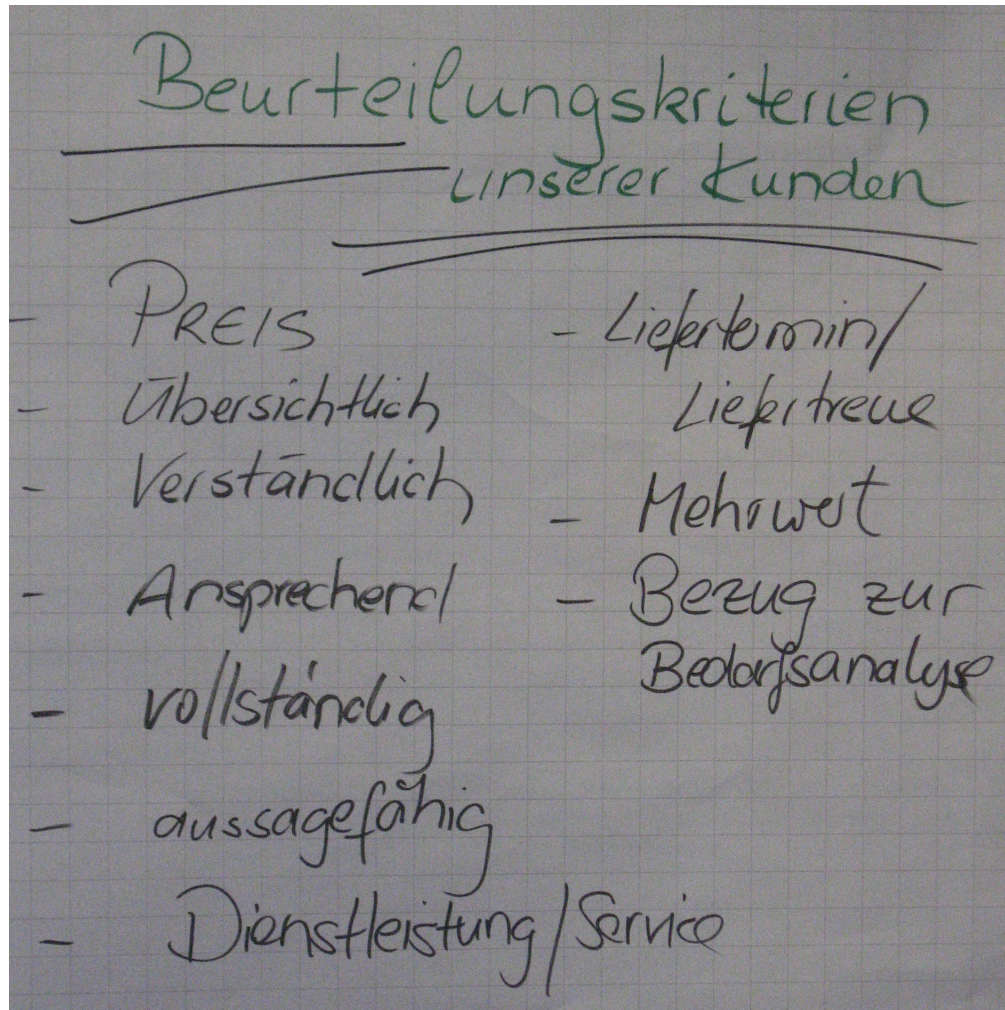 Beurteilungskriterien
unserer Kunden
- PREIS
- Übersichtlich
- Verständlich
- Ansprechend
- vollständig
- aussagefähig
- Dienstleistung/Service
- Liefertermin/
Liefertreue
- Mehrwert
- Bezug zur
Bedarfsanalyse